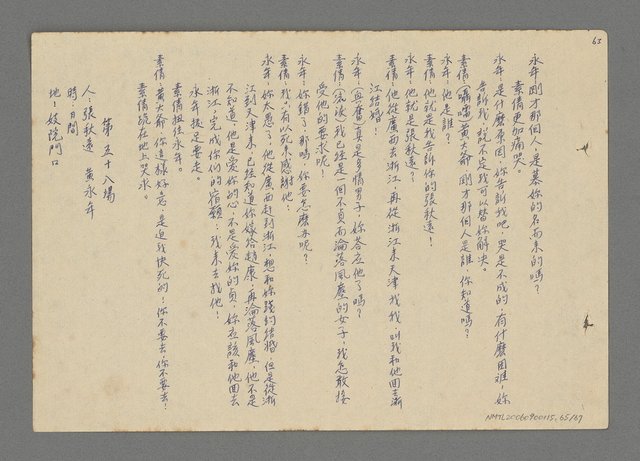 63
永年 剛才那個人，是慕妳的名而來的嗎？
素倩 更加痛哭。
永年 是什麼原因，你告訴我吧，哭是不成的，有什麼困難，妳
告訴我，說不定我可以替妳解決。
素倩（囁嚅）黃大爺 剛才那個人是誰，你知道嗎？
永年 他是誰？
素倩 他就是我告訴你的張秋遠！
永年 他就是張秋遠？
素倩 他從廣西去浙江，再從浙江來天津找我，叫我和他回去浙
江結婚！
永年（興奮）真是多情男子，妳答應他了嗎？
素倩（流淚）我已經是一個不貞而淪落風塵的女子，我怎敢接
受他的要求呢！
永年 妳錯了！那嗎，你要怎麼办呢？
素倩 我只有以死來感謝他！
永年 妳太愚了，他從廣西赶到浙江，想和妳踐約結婚，但是從浙
江到天津來，已經知道你嫁給趙康，再淪落風塵，他不是
不知道，他是愛你的心，不是愛妳的貞，妳应該和他回去
浙江，完成你們的宿願！我來去找他！
永年 拔足要走。
素倩 拉住永年。
素倩 黃大爺，你這樣好意，是迫我快死的！你不要去，你不要去！
素倩跪在地上哭求。
第五十八場
時：日間
人：張秋遠 黃永年
地：妓院門口
NMTL20060900115.65/67